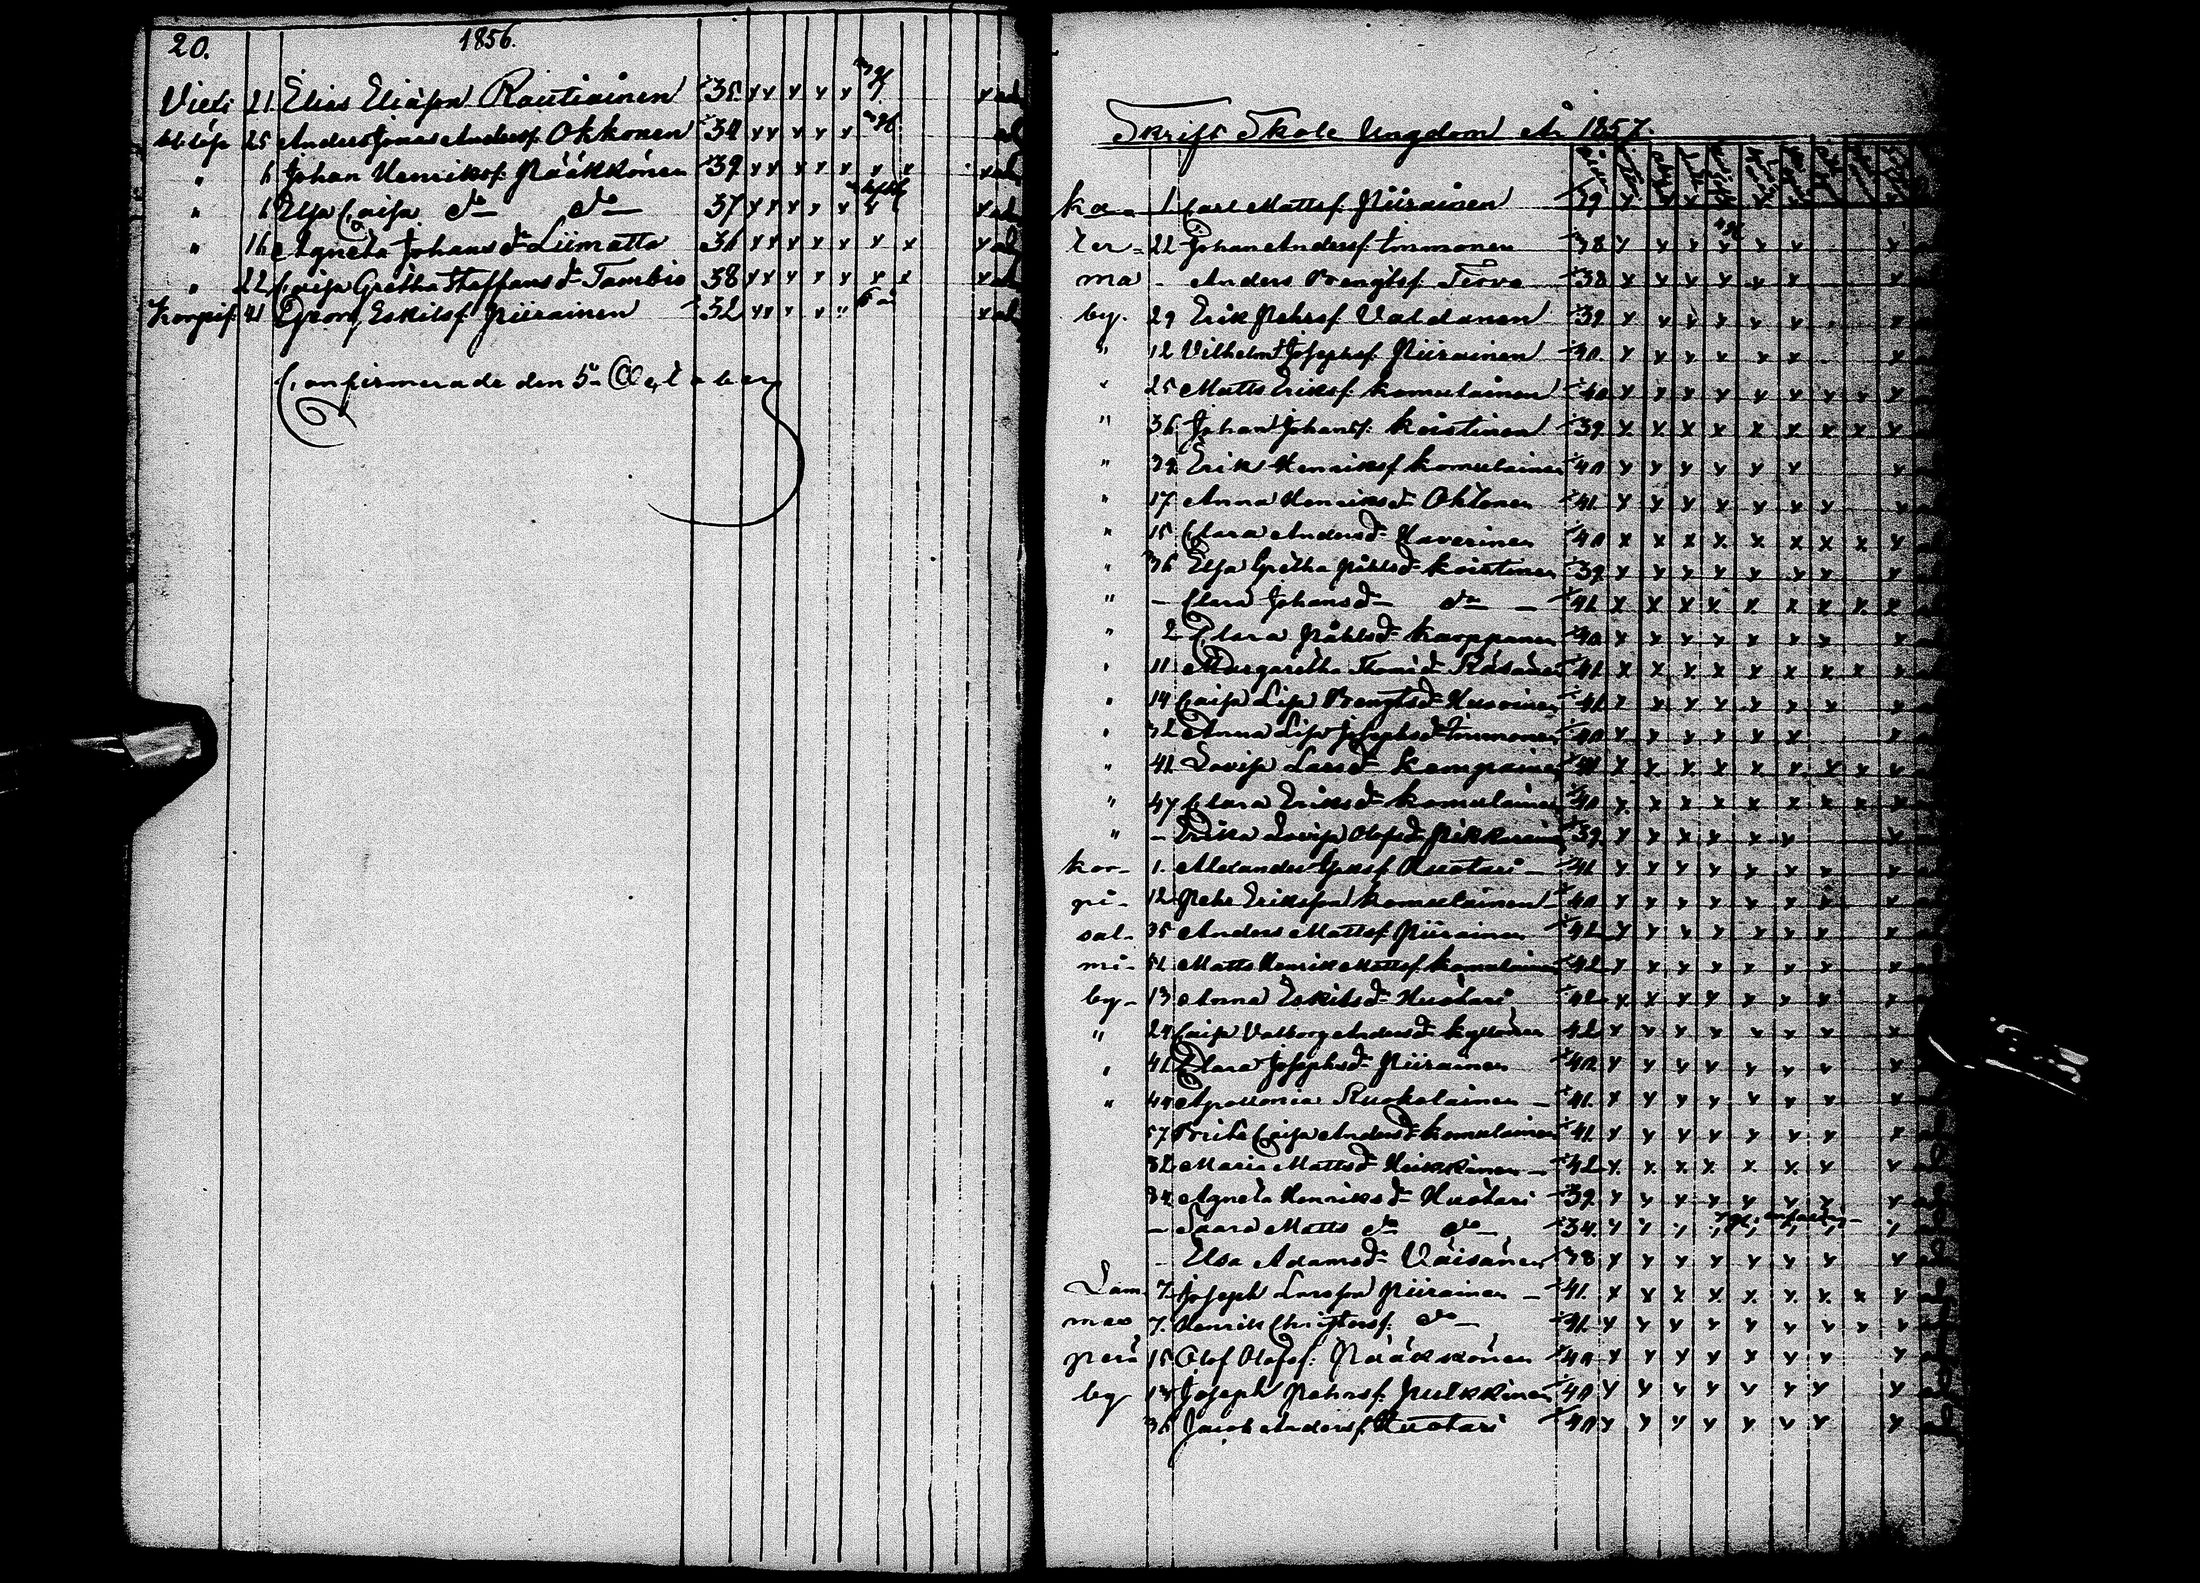 20. 1856.
21 Elias Eliasson Rautiainen 35
25 Anders Jonas Andersf. Okkonen 34
" 6 Johan Henriksf. Pääkkönen 39
" 6 Elsa Caisa do do 37
" 16 Agneta Johansdr Liimatta 36
" 22 Caisa Gretha Staffansdr Tambio 38
21 Eskilsf. Piirainen 32
Confirmerade den 5te October
Skrift Skole Ungdom År 1857.
ka- 1 Carl Mattsf. Piirainen 39
ler- 22 Johan Andersf. Immonen 38
ma - Anders Bengtsf. Tervo 38
by. 29 Erik Pehrsf. Valdanen 39
" 12 Vilhelm Josephsf. Piirainen 40
" 25 Matts Eriksf. Komulainen 40
" 36 Johan Johansf. Koistinen 39
" Erik Henriksf. Komulainen 40
" 17 Anna Henriksdr Ohtonen 41
" 15 Clara Andersdr Haverinen 40
" 36 Elsa Gretha Påhlsdr Koistinen 39
" - Clara Johansdr do - 41
" 2 Clara Påhlsdr Karppanen 40
" 11 Margaretha Thomsdr Räsänen 41
" 14 Caisa Lisa Bengtsdr Huovinen 41
" 32 Anna Lisa Josephsdr Immonen 40
" 41 Lovisa Larsdr Kemppainen
" 47 Clara Eriksdr Komulainen 40
" - Erika Lovisa Olofsdr Pikkarainen 39
kor- 1. Alexander Huotari - 41
pi- 12 Pehr Eriksson Komulainen 40
sal- 35 Anders Mattsf. Piirainen 42
mi- 51 Matts Henrik Mattsf. Komulainen 42
by- 13 Anna Eskilsdr Huotari 42
" 24 Caisa Valborg Andersdr Kyllönen 42
" 41 Clara Josephsdr Piirainen 42
" 44 Apollonia Ruokolainen - 41
57 Brita Caisa Andersdr Komulainen 41
32 Maria Mattsdr Heikkinen - 42
34 Agneta Henriksdr Huotari 39
- Matts do do - 34
- Elsa Adamsdr Väisänen 38
Lam- 7. Joseph Larsson Piirainen - 41
mas 7. Henrik Christersf. do - 41
perä 15 Olof Olofsf. Pääkkönen 40
by 13 Joseph Pehrsf. Pulkkinen 40
36 Jacob Andersf. Huotari 40